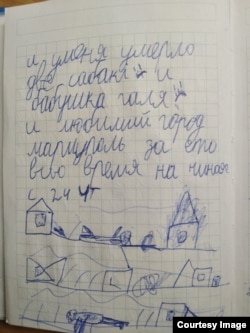 и у меня умерло
две сабаки и
бабушка галя
и любимий город
мариуполь за ето
всю время на чиная
с 24 чт
Courtesy Image